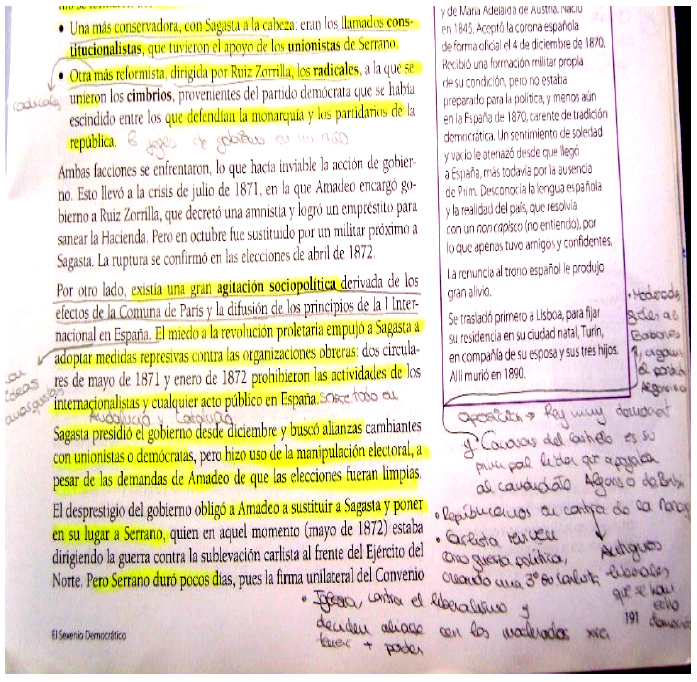 • Una más conservadora, con Sagasta a la cabeza: eran los llamados cons-
titucionalistas, que tuvieron el apoyo de los unionistas de Serrano.
• Otra más reformista, dirigida por Ruiz Zorrilla, los radicales, a la que se
unieron los cimbrios, provenientes del partido demócrata que se había
escindido entre los que defendían la monarquía y los partidarios de la
república. 6 jefes de gobierno en un año
radicales
Ambas facciones se enfrentaron, lo que hacía inviable la acción de gobier-
no. Esto llevó a la crisis de julio de 1871, en la que Amadeo encargó go-
bierno a Ruiz Zorrilla, que decretó una amnistía y logró un empréstito para
sanear la Hacienda. Pero en octubre fue sustituido por un militar próximo a
Sagasta. La ruptura se confirmó en las elecciones de abril de 1872.
Por otro lado, existía una gran agitación sociopolítica derivada de los
efectos de la Comuna de París y la difusión de los principios de la I Inter-
nacional en España. El miedo a la revolución proletaria empujó a Sagasta a
adoptar medidas represivas contra las organizaciones obreras: dos circula-
res de mayo de 1871 y enero de 1872 prohibieron las actividades de los
internacionalistas y cualquier acto público en España. sobre todo en
Andalucía Cataluña
ideas
Sagasta presidió el gobierno desde diciembre y buscó alianzas cambiantes
con unionistas o demócratas, pero hizo uso de la manipulación electoral, a
pesar de las demandas de Amadeo de que las elecciones fueran limpias.
El desprestigio del gobierno obligó a Amadeo a sustituir a Sagasta y poner
en su lugar a Serrano, quien en aquel momento (mayo de 1872) estaba
dirigiendo la guerra contra la sublevación carlista al frente del Ejército del
Norte. Pero Serrano duró pocos días, pues la firma unilateral del Convenio
El Sexenio Democrático
y de María Adelaida de Austria. Nació
en 1845. Aceptó la corona española
de forma oficial el 4 de diciembre de 1870.
Recibió una formación militar propia
de su condición, pero no estaba
preparado para la política, y menos aún
en la España de 1870, carente de tradición
democrática. Un sentimiento de soledad
y vacío le atenazó desde que llegó
a España, más todavía por la ausencia
de Prim. Desconocía la lengua española
y la realidad del país, que resolvía
con un non capisco (no entiendo), por
lo que apenas tuvo amigos y confidentes.
La renuncia al trono español le produjo
gran alivio.
Se trasladó primero a Lisboa, para fijar
su residencia en su ciudad natal, Turín,
en compañía de su esposa y sus tres hijos.
Allí murió en 1890.
oposición → Rey muy
Canovas del Castillo es su
principal líder que apoyaba
al candidato Alfonso de
• Republicanos en contra de la
• Carlista
guerra política,
creando una 3ª
Antiguos
liberales
que se han
• Iglesia, contra el liberalismo y
deciden aliarse con los moderados
tener + poder
191